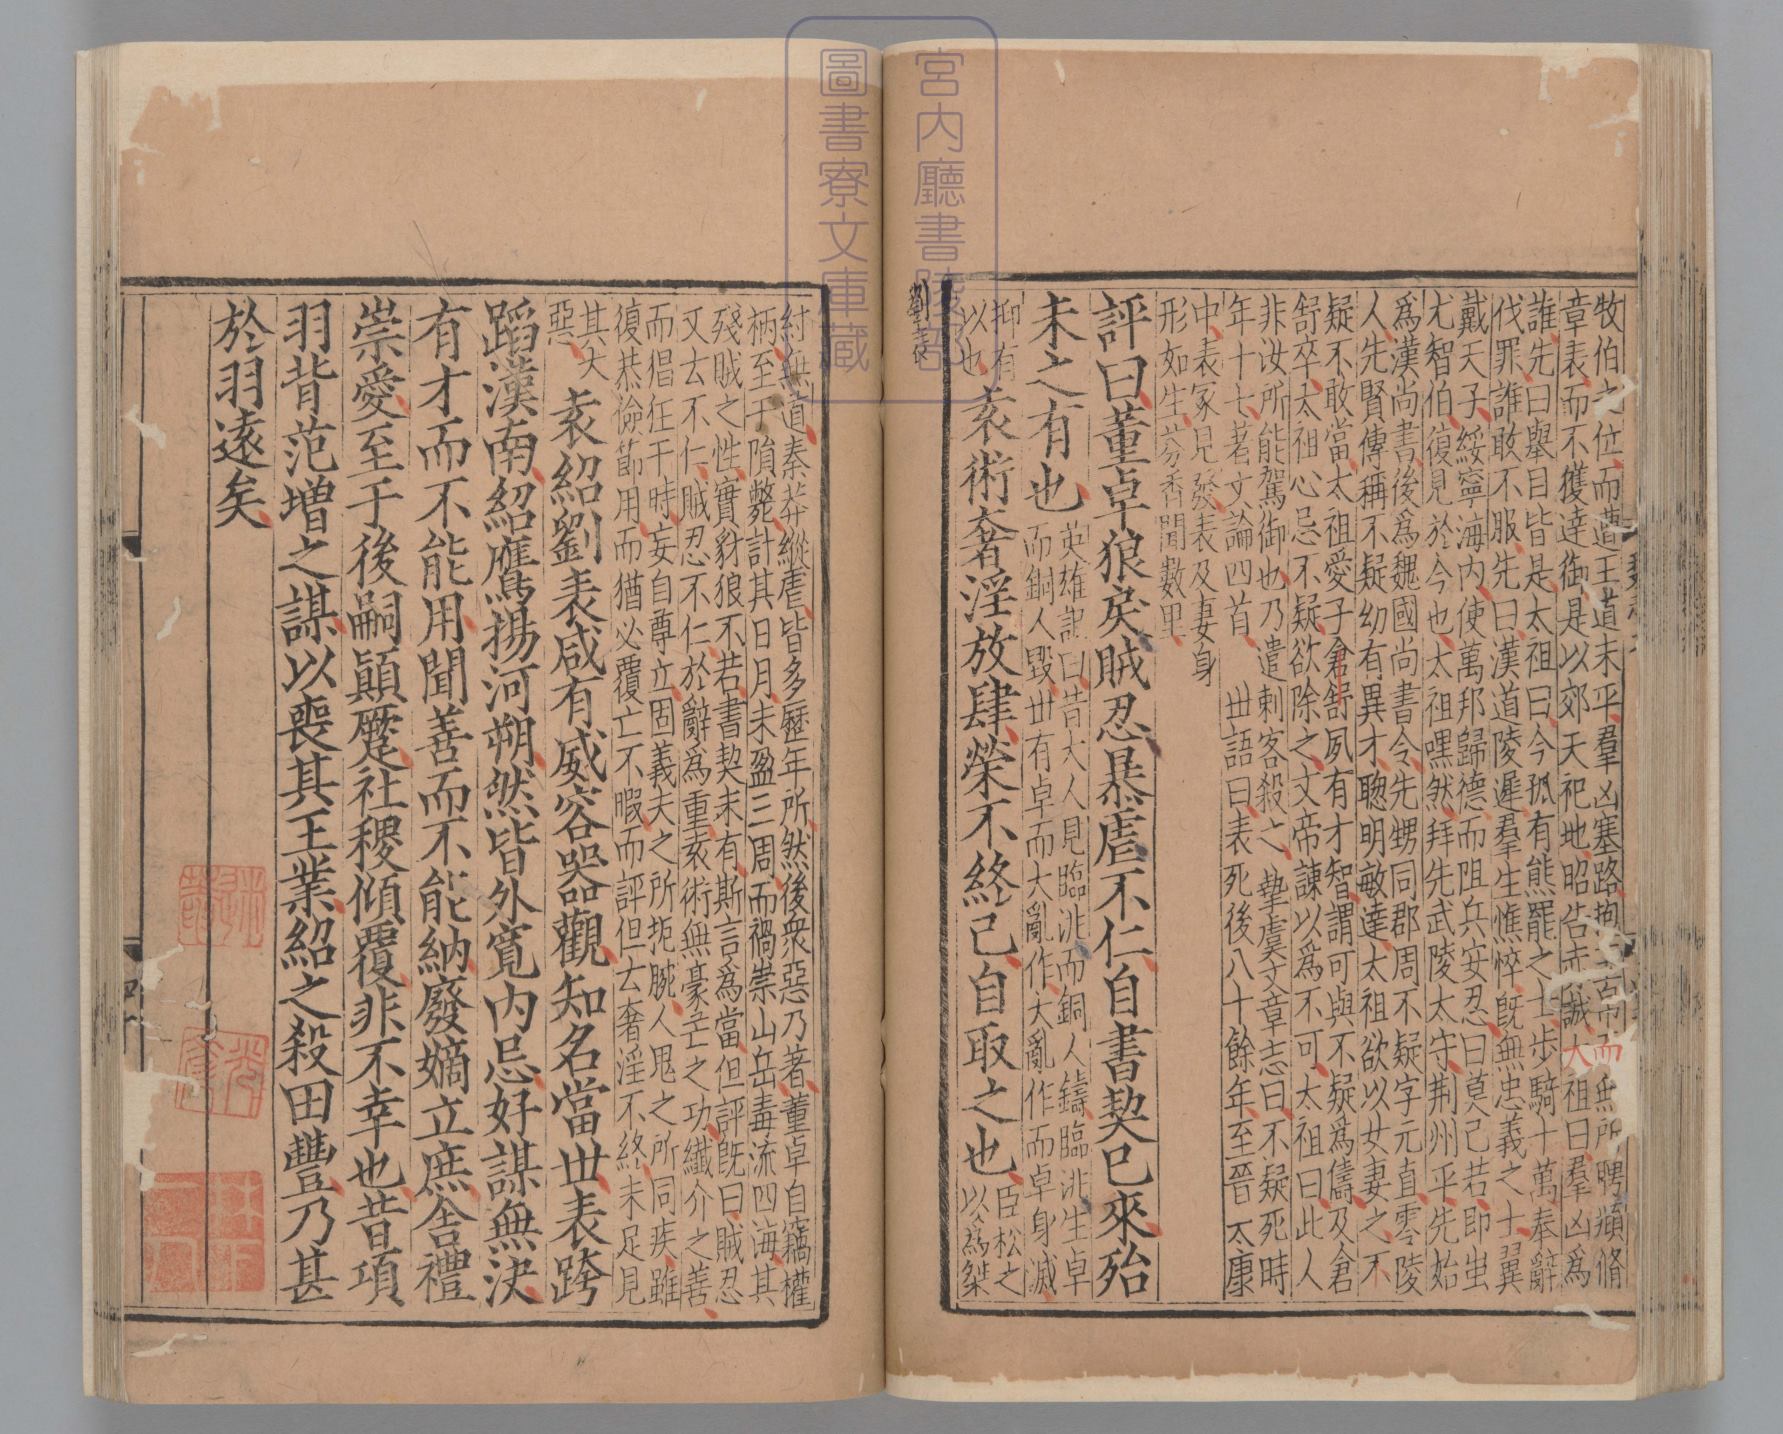 牧伯之位而遭王道未平羣凶塞路抱帛而無所聘頫脩
章表而不獲達御是以郊天祀地昭告赤誠太祖曰羣凶爲
誰先曰舉目皆是太祖曰今孤有熊羆之士步騎十萬奉辭
伐罪誰敢不服先曰漢道陵遲羣生憔悴旣無忠義之士翼
戴天子綏寧海內使萬邦歸德而阻兵安忍曰莫己若即蚩
尤智伯復見於今也太祖嘿然拜先武陵太守荆州平先始
爲漢尚書後爲魏國尚書令先甥同郡周不疑字元直零陵
人先賢傳稱不疑幼有異才聰明敏達太祖欲以女妻之不
疑不敢當太祖愛子倉舒夙有才智謂可與不疑爲儔及倉
舒卒太祖心忌不疑欲除之文帝諫以爲不可太祖曰此人
非汝所能駕御也乃遣刺客殺之 摯虞文章志曰不疑死時
年十七著文論四首 世語曰表死後八十餘年至晉太康
中表冢見發表及妻身
形如生芬香聞數里
評曰董卓狼戾賊忍暴虐不仁自書契已來殆
未之有也
英雄記曰昔大人見臨洮而銅人鑄臨洮生卓
而銅人毀世有卓而大亂作大亂作而卓身滅
抑有
以也
袁術奢淫放肆榮不終己自取之也
臣松之
以爲桀
劉表
紂無道秦莽縱虐皆多歷年所然後衆惡乃著董卓自竊權
柄至于隕斃計其日月未盈三周而禍崇山岳毒流四海其
殘賊之性實豺狼不若書契未有斯言爲當但評旣曰賊忍
又去不仁賊忍不仁於辭爲重袁術無豪芒之功纖介之善
而猖狂于時妄自尊立固義夫之所扼腕人鬼之所同疾雖
復恭儉節用而猶必覆亡不暇而評但去奢淫不終未足見
其大
惡
袁紹劉表咸有威容器觀知名當世表跨
蹈漢南紹鷹揚河朔然皆外寛內忌好謀無決
有才而不能用聞善而不能納廢嫡立庶舍禮
崇愛至于後嗣顚蹷社稷傾覆非不幸也昔項
羽背范增之謀以喪其王業紹之殺田豐乃甚
於羽遠矣
宮內廳書陵部
圖書寮文庫藏